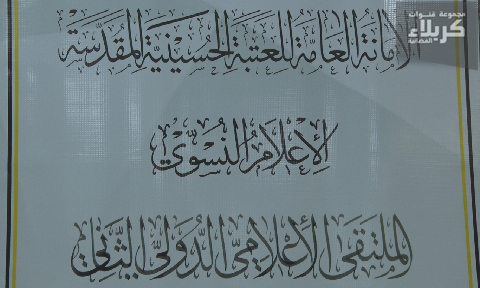 مجموعة قنوات
كربلاء
الفضائية
الأمانة العامة للعتبة الحسينية المقدسة
الإعلام النسوي
الملتقى الإعلامي الدولي الثاني